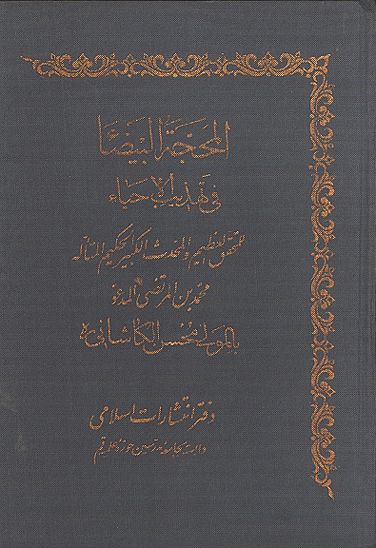 المحجة البیضاء
فی تهذیب الاحیاء
للمحقق العظیم والمحدث الکبیر الحکیم المتأله
محمد بن المرتضی المدعو
بالمولی محسن الکاشانی
دفتر انتشارات اسلامی
وابسته بجامعه مدرسین حوزه علمیه قم